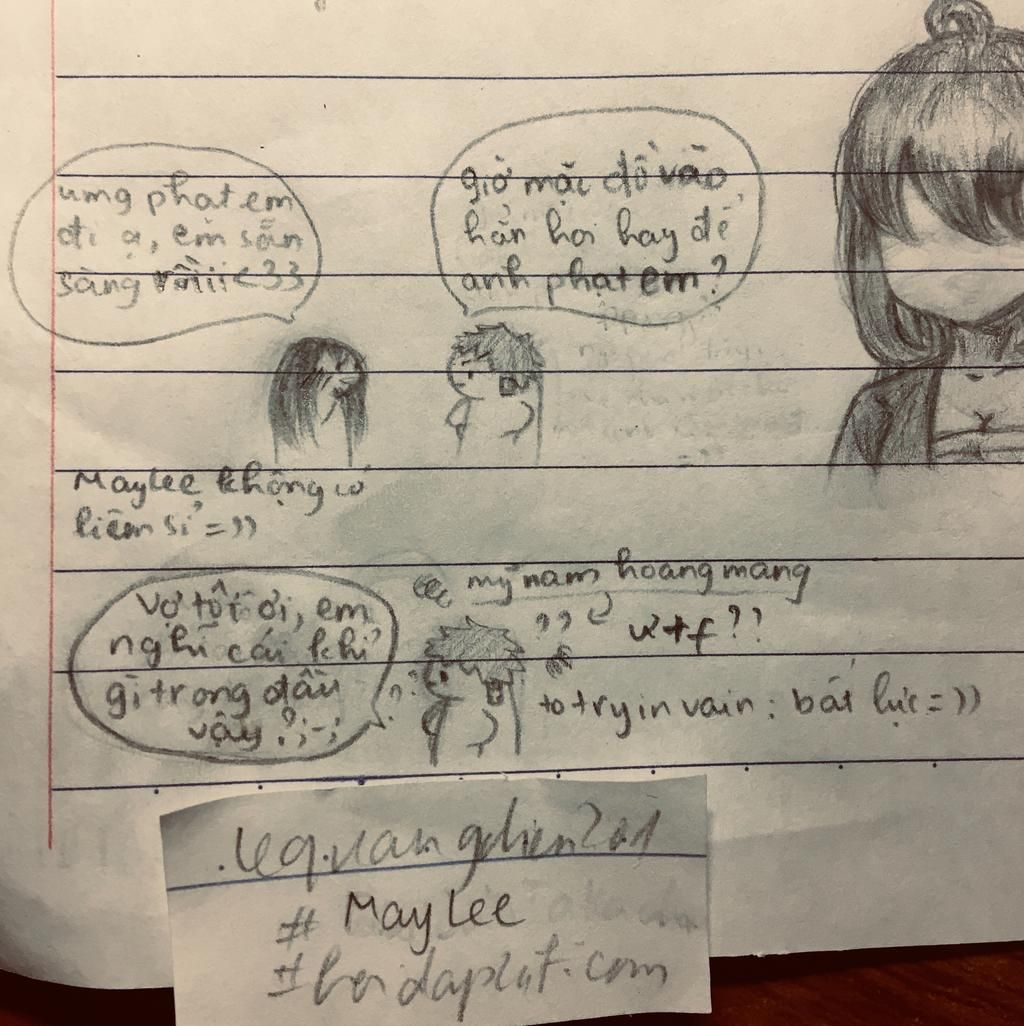 ưng phạt em
đi ạ, em sẵn
sàng rồiii<33
giờ mặc đồ vào
hẳn hoi hay để
anh phạt em?
MayLee không có
liêm sỉ =))
Vợ tôi ơi, em
nghĩ cái khỉ
gì trong đầu
vậy?;-;
mỹ nam hoang mang
??
wtf??
to try in vain: bất lực =))
# MayLee